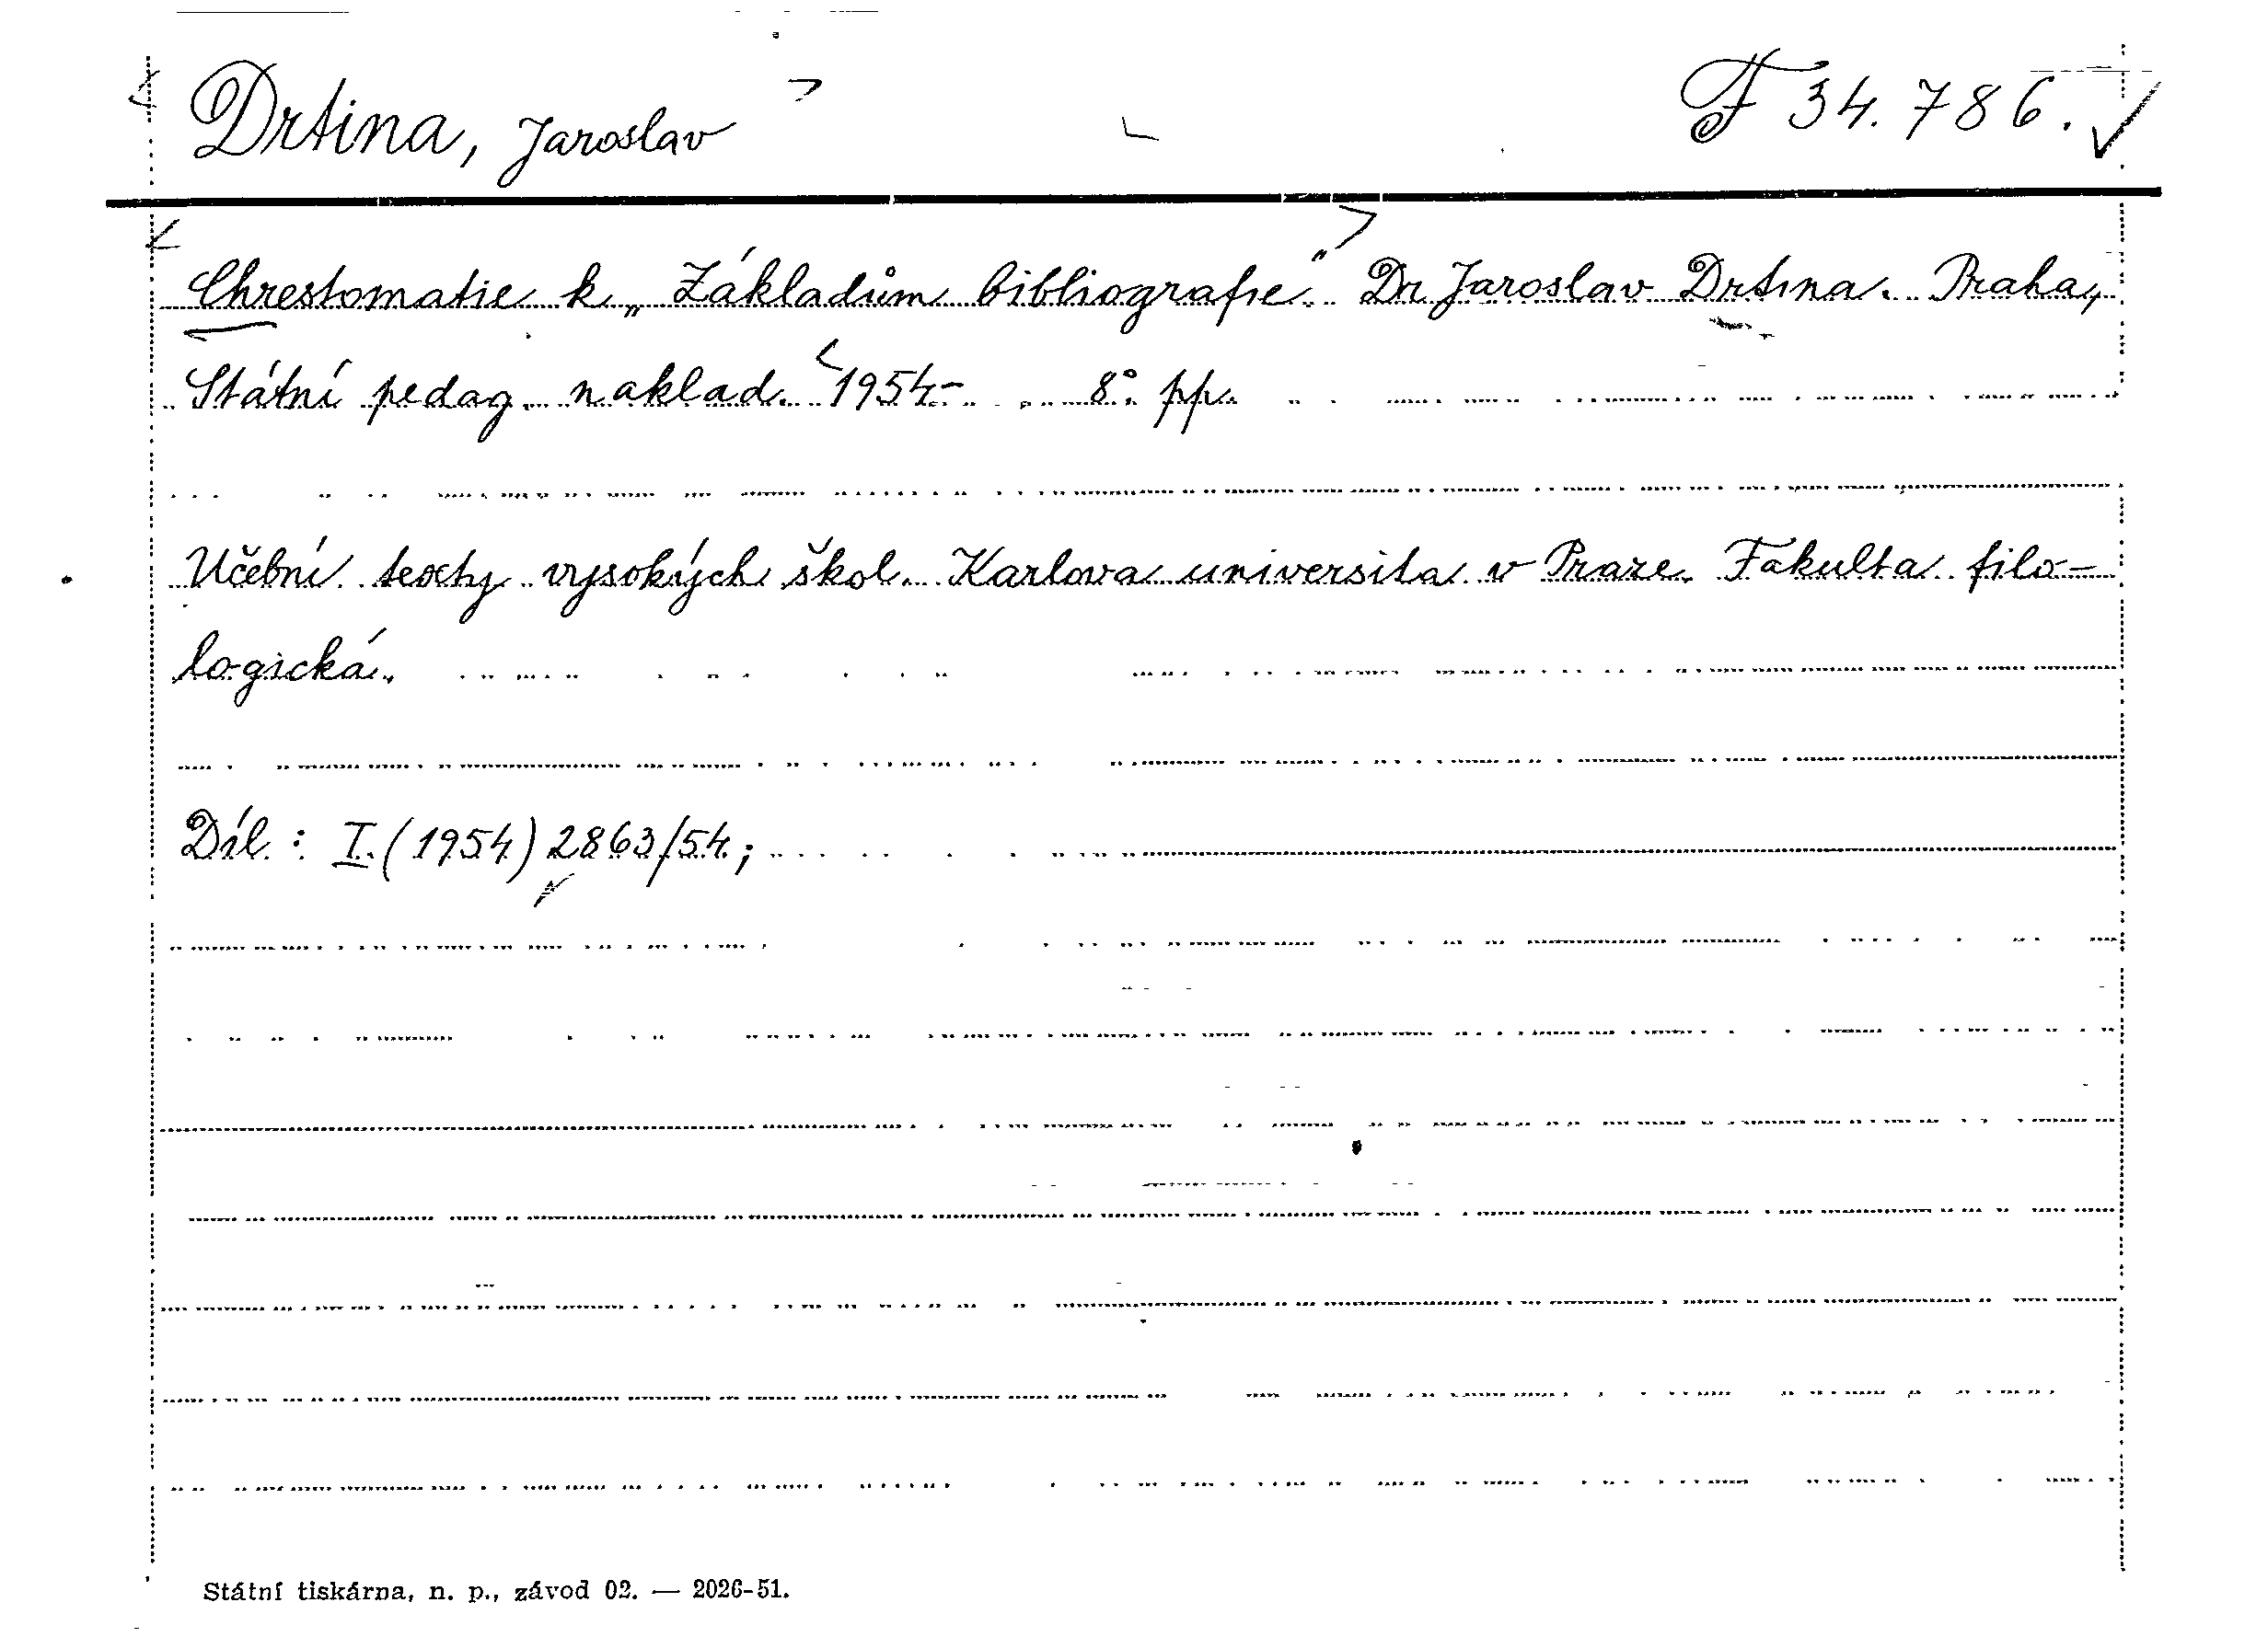 Drtina, Jaroslav F 34.786.
Chrestomatie k „Základům bibliografie." Dr Jaroslav Drtina. Praha,
Státní pedag. naklad. 1954- 8° pp.
Učební texty vysokých škol. Karlova universita v Praze. Fakulta filo-
logická.
Díl: I. (1954) 2863/54;
Státní tiskárna, n. p., závod 02. — 2026-51.